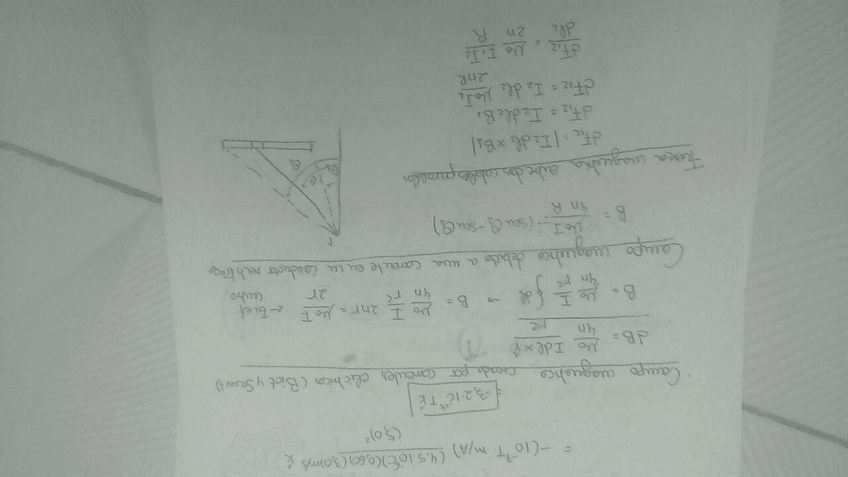 = -(10⁻⁷ T·m/A) (4,5·10⁻⁹C)(0,60)(3,0)m/s k̂ / (5,0)²
= -3,2·10⁻¹⁴ T k̂
Campo magnético creado por corrientes eléctricas (Biot y Savart)
dB = μ₀/4π Idℓ×r̂/r²
B = μ₀/4π I/r² ∮ dℓ → B = μ₀/4π I/r² 2πr = μ₀I/2r ←
Campo magnético debido a una corriente en un conductor rectilíneo
B = μ₀I/4πR · (senθ₂ - senθ₁)
θ₂
θ
θ₁
Fuerza magnética entre dos cables paralelos
dF₁₂ = |I₂dℓ₂ × B₁|
dF₁₂ = I₂dℓ₂B₁
dF₁₂ = I₂dℓ₂ μ₀I₁/2πR
dF₁₂/dℓ₂ = μ₀/2π I₁I₂/R